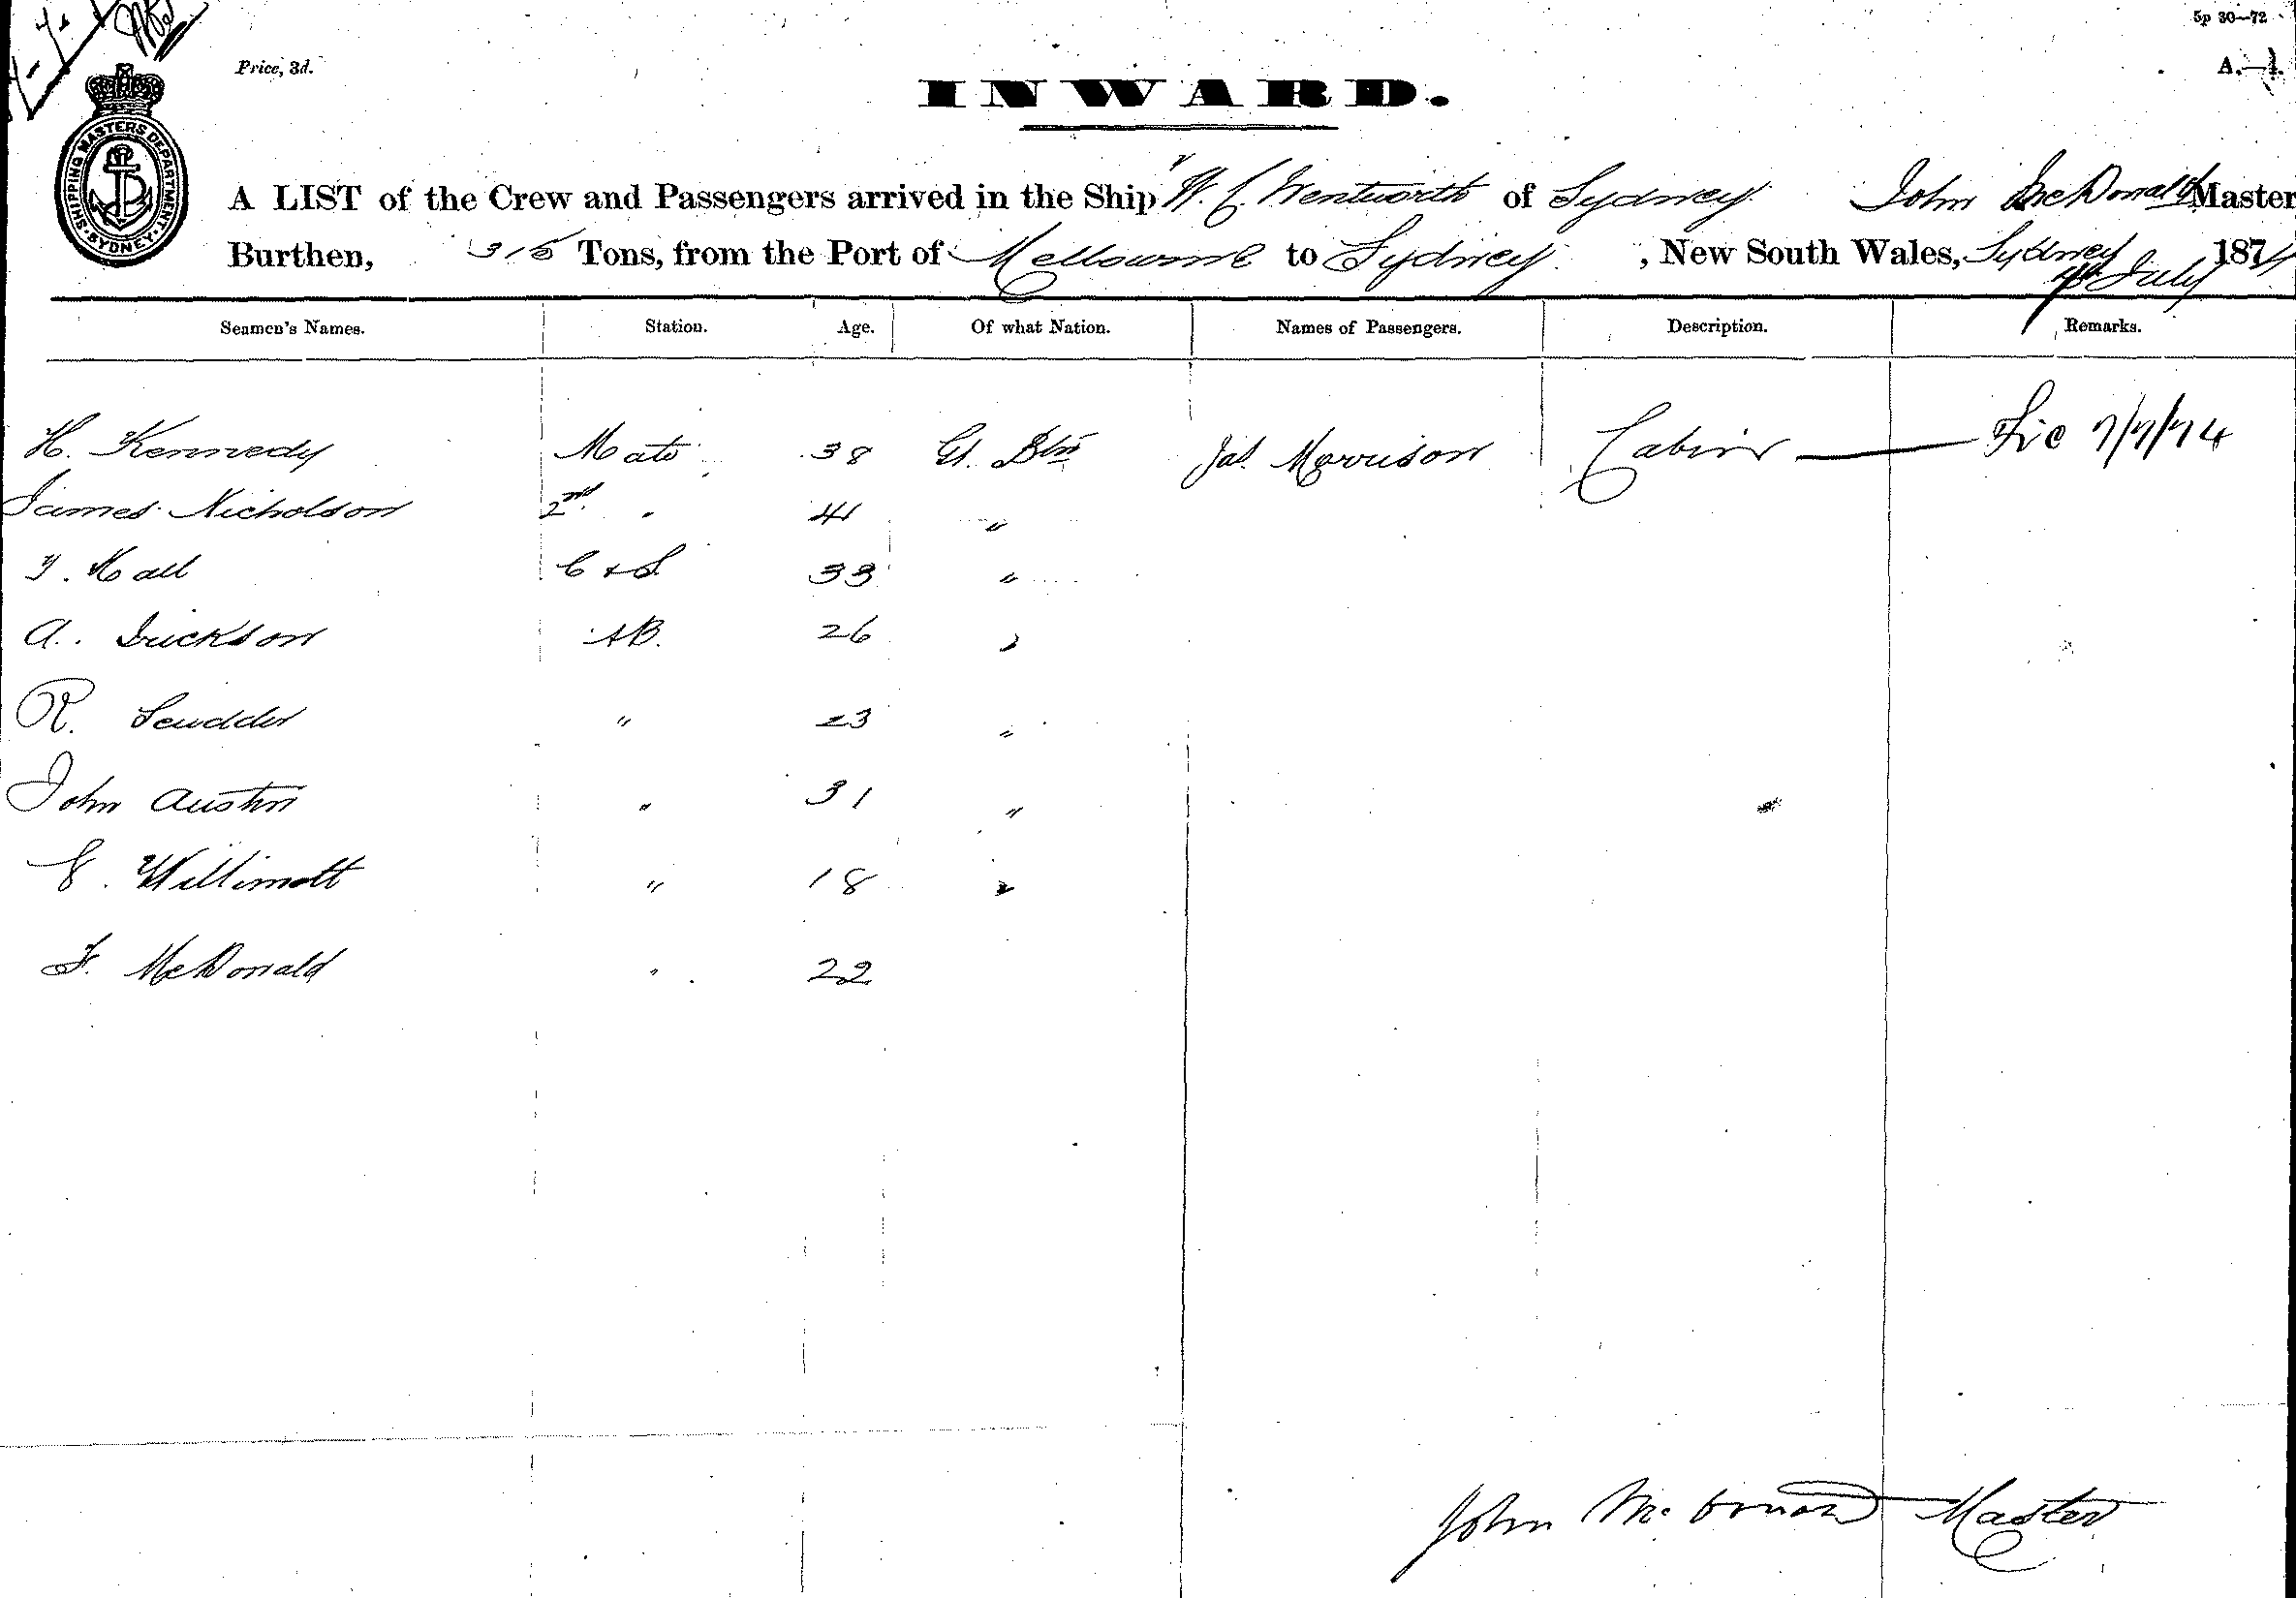 5p 30—72
Price, 3d.
A.—1.
INWARD.
SHIPPING MASTERS DEPARTMENT
SYDNEY
A LIST of the Crew and Passengers arrived in the Ship "W. C. Wentworth of Sydney John McDonald Master
Burthen, 315 Tons, from the Port of Melbourne to Sydney , New South Wales, Sydney July 1874
Seamen's Names. Station. Age. Of what Nation. Names of Passengers. Description. Remarks.
H. Kennedy Mate 38 Gt. Btn Jas. Morrison Cabin — 7/7/74
James Nicholson 2nd " 41 "
T. Hall C & S. 33 "
A. Erickson AB. 26 "
R. Scudder " 23 "
John Austin " 31 "
Willimott " 18 "
F. McDonald " 22
John McDonald Master